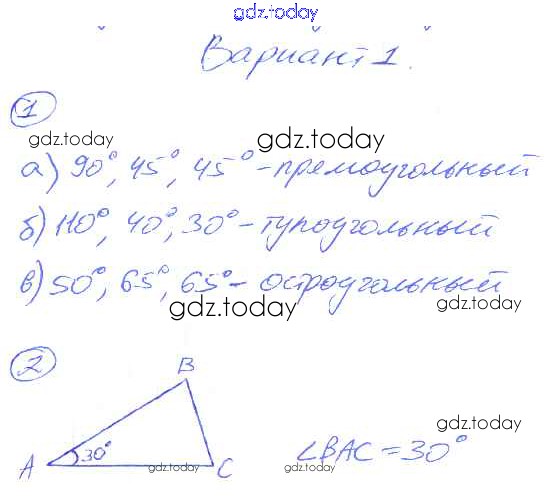 gdz.today
Вариант 1.
1
gdz.today
gdz.today
а) 90°, 45°, 45° - прямоугольный
б) 110°, 40°, 30° - тупоугольный
в) 50°, 65°, 65° - остроугольный
gdz.today
gdz.today
2
B
gdz.today
30°
∠BAC = 30°
A
gdz.today
C
gdz.today